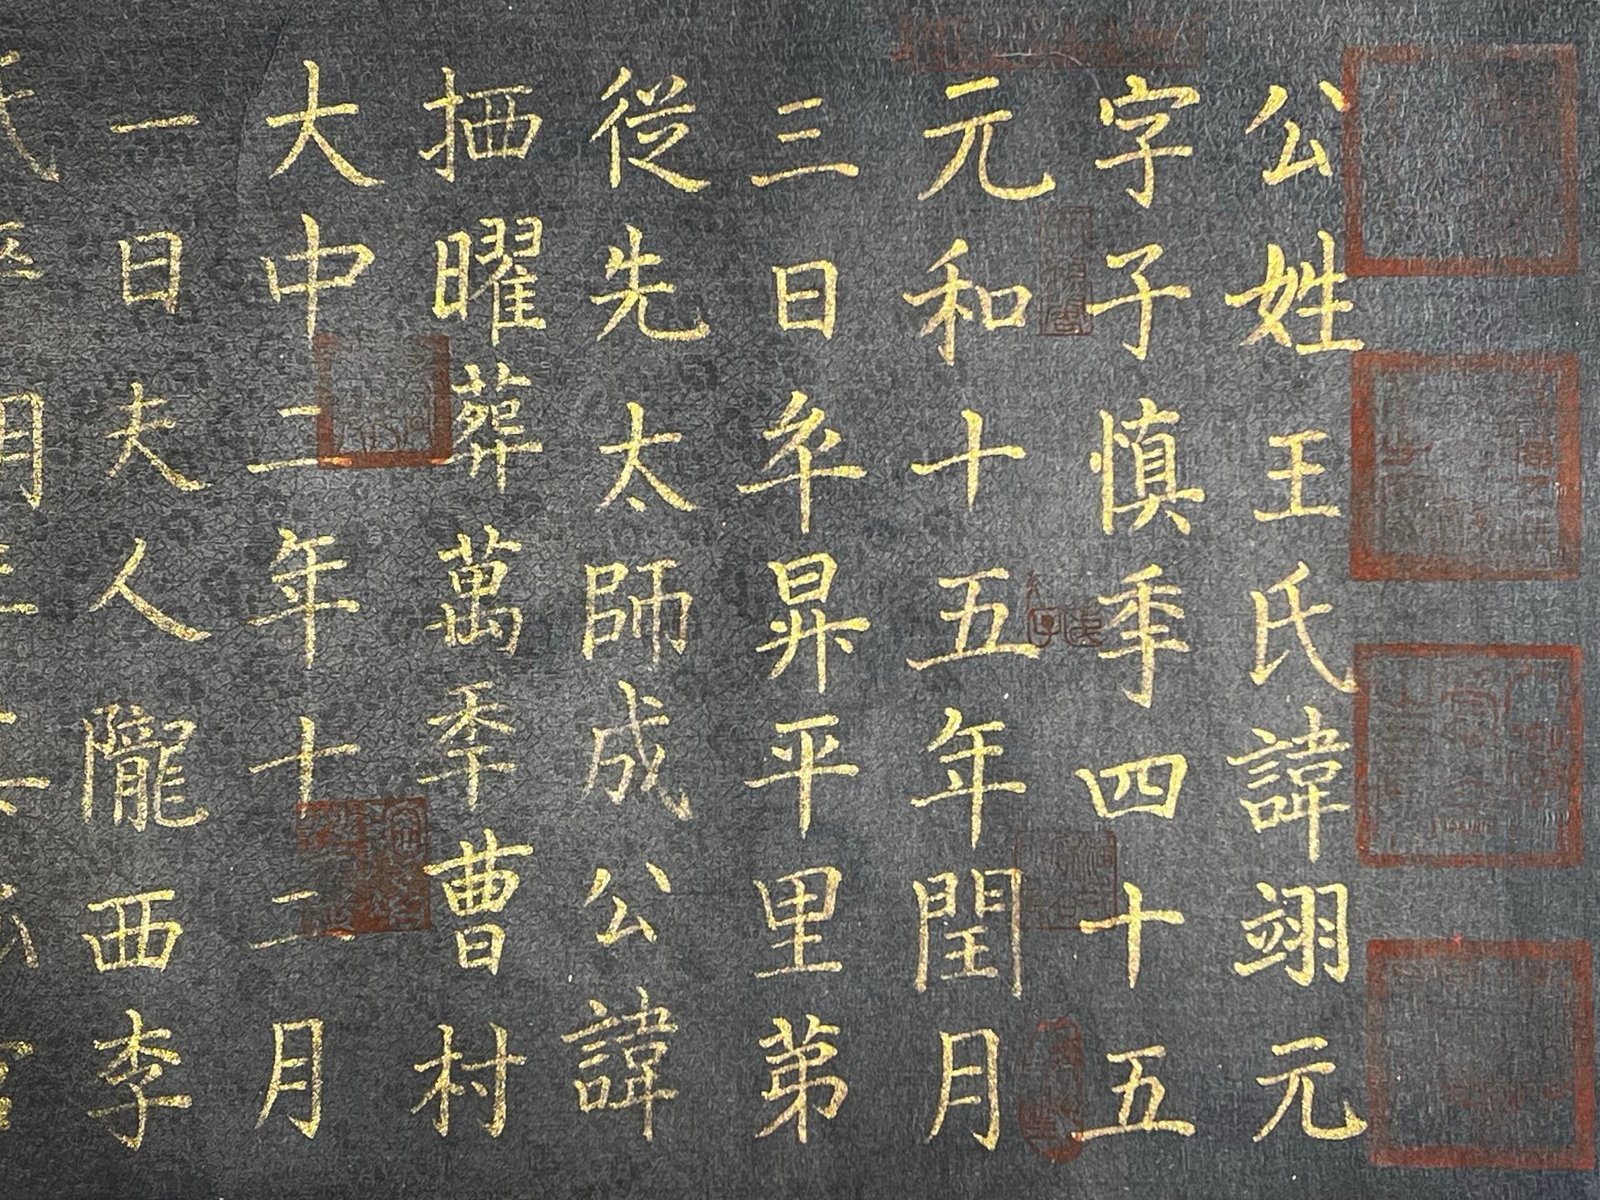 公姓王氏諱翊元
字子慎秊四十五
元和十五年閏月
三日卒昇平里苐
從先太師成公諱
栖曜葬萬秊曹村
大中二年十二月
一日夫人隴西李